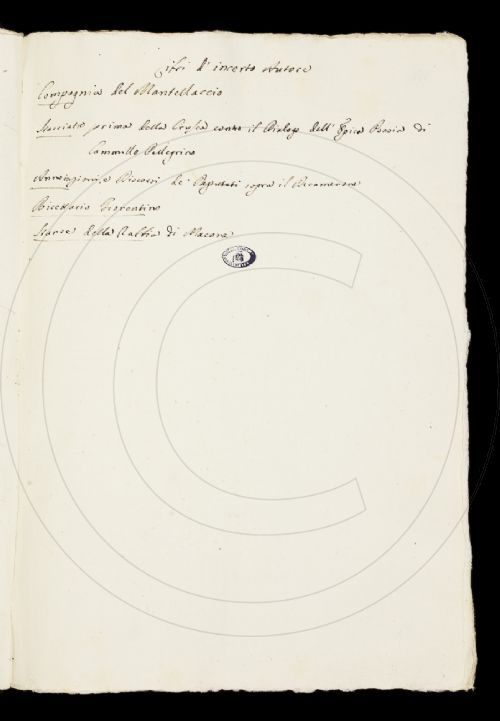 d' incerto Autore
Compagnia del Mantellaccio
Stacciata prima della Crusca contro il Dialogo dell' Epica Poesia di
Cammillo Pellegrino
Annotazioni, e Discorsi de' Deputati sopra il Decamerone
Ricettario Fiorentino
Stanze della Rabbia di Macone